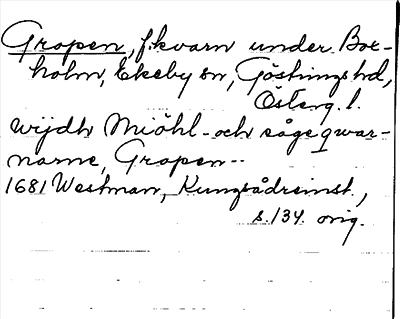 Gropen, f. kvarn under Box-
holm, Ekeby sn, Göstrings hd,
Österg. l.
wijdh Miöhl- och sågeqwar-
narne, Gropen --
1681 Westman, Kungsådreinst.,
s. 134. orig.